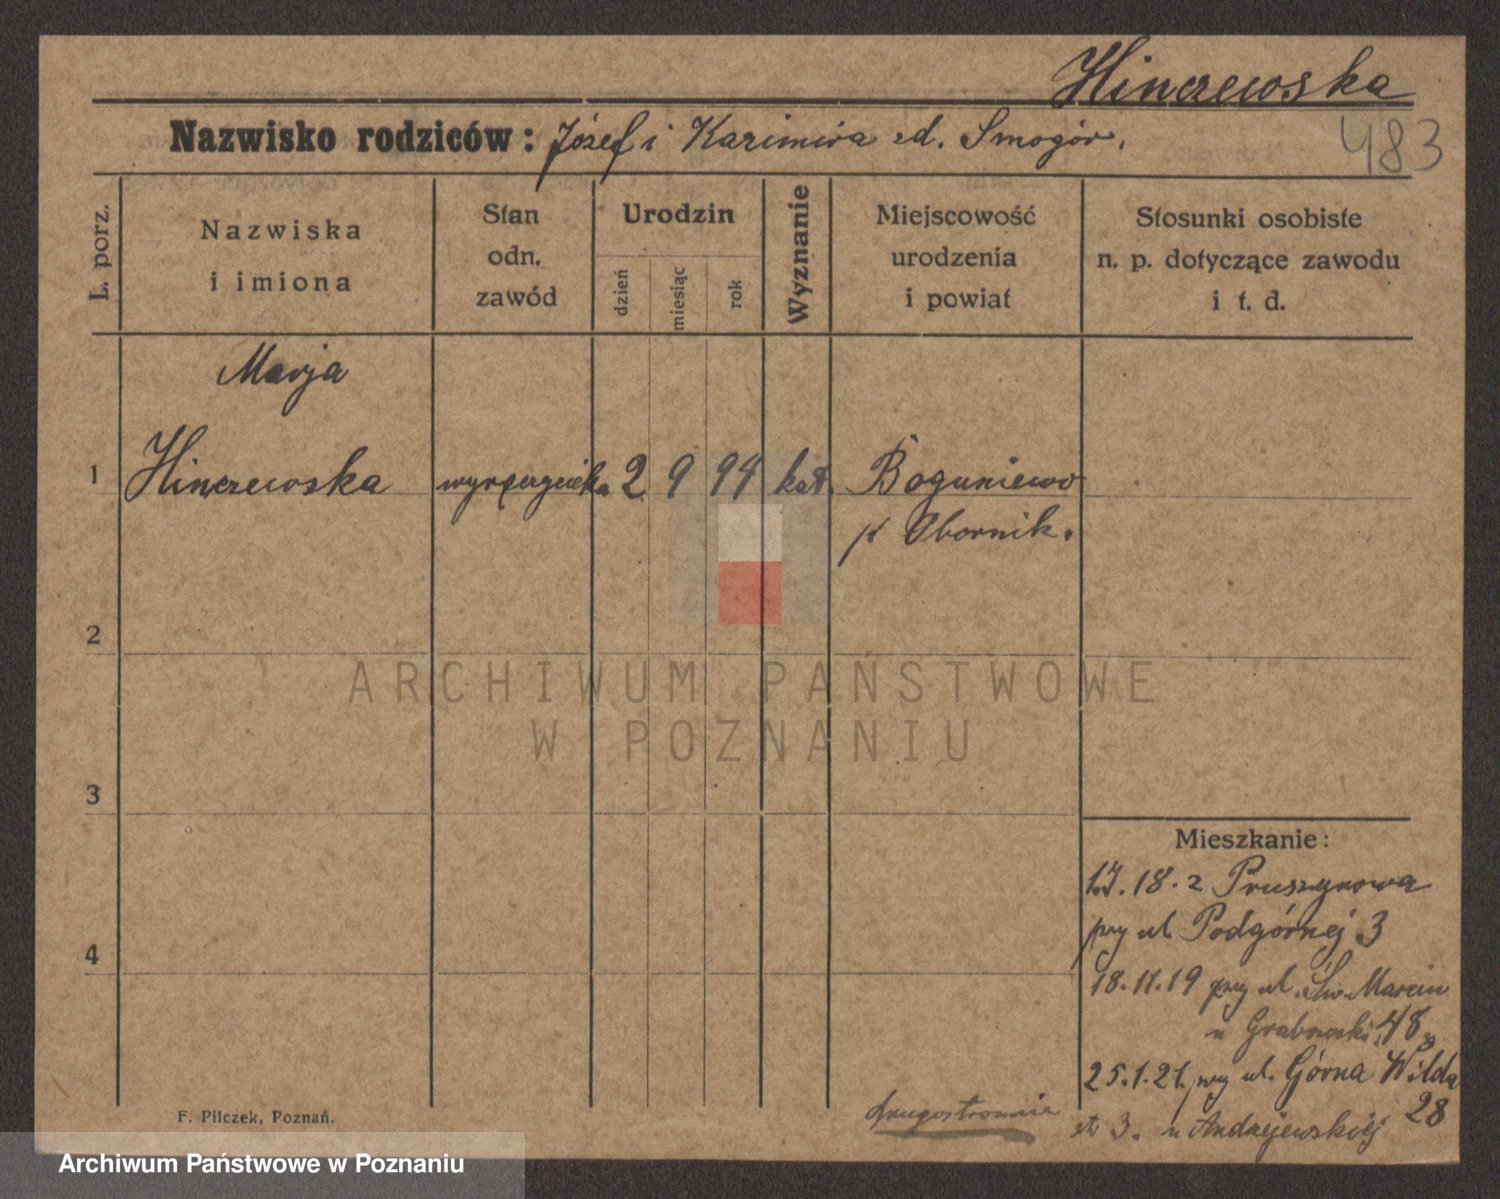 Hinczewska
Nazwisko rodziców: Józef i Kazimira zd. Smogór.
483
L. porz.
Nazwiska
i imiona
Stan
odn.
zawód
Urodzin
dzień
miesiąc
rok
Wyznanie
Miejscowość
urodzenia
i powiat
Stosunki osobiste
n. p. dotyczące zawodu
i t. d.
Marja
1 Hinczewska 2 9 94 kat. Boguniewo
p Obornik.
2
3
4
Mieszkanie:
1.7.18. z Pruszynowa
przy ul Podgórnej 3
18.11.19 przy ul. Św. Marcin
u Grabowski 48
25.1.21. przy ul. Górna Wilda
28
3. u Andrzejewskiej
drugostronnie
F. Pilczek, Poznań.
ARCHIWUM PAŃSTWOWE
W POZNANIU
Archiwum Państwowe w Poznaniu